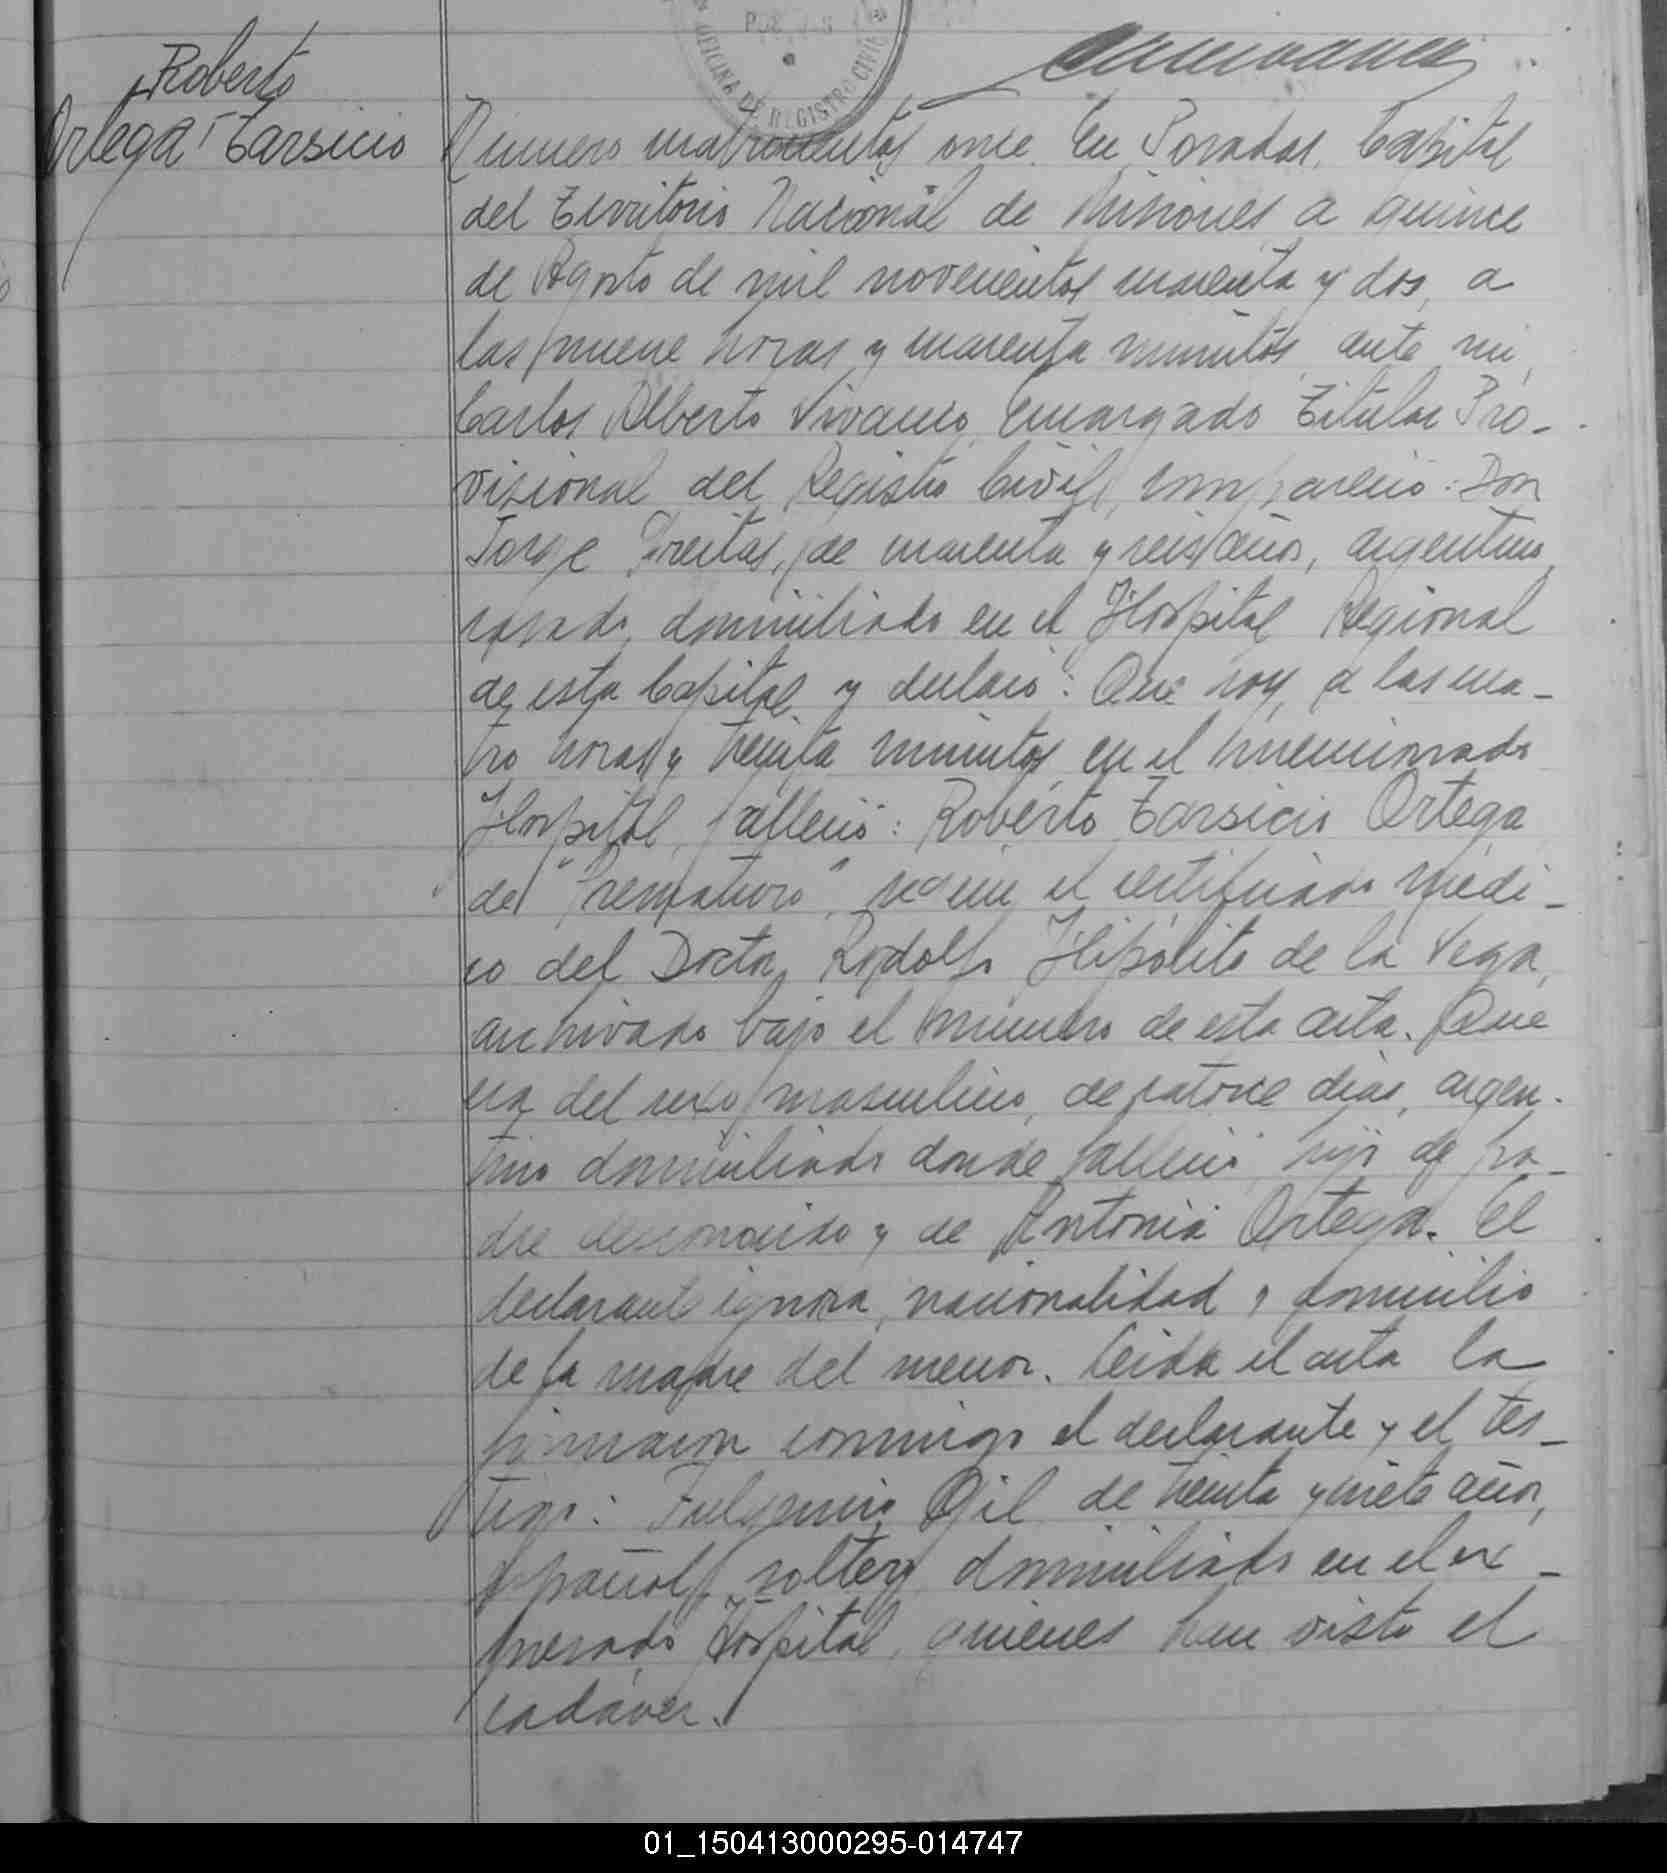 Roberto
Ortega Tarsicio
OFICINA DE REGISTRO CIVIL
Número cuatrocientos once. En Posadas, Capital
del Territorio Nacional de Misiones a quince
de Agosto de mil novecientos cuarenta y dos, a
las nueve horas y cuarenta minutos, ante mi,
Carlos Alberto Vivanco, Encargado Titular Pro-
visional del Registro Civil, compareció: Don
Jorge Freitas, de cuarenta y seis años, argentino,
casado, domiciliado en el Hospital Regional
de esta Capital y declaró: Que hoy, a las cua-
tro horas y treinta minutos, en el mencionado
Hospital, falleció: Roberto Tarsicio Ortega
de "Prematuro", según el certificado médi-
co del Doctor Rodolfo Hipólito de la Vega,
archivado bajo el número de esta acta. Que
era del sexo masculino, de catorce días, argen-
tino domiciliado donde falleció, hijo de pa-
dre desconocido y de Antonia Ortega. El
declarante ignora, nacionalidad y domicilio
de la madre del menor. Leida el acta la
firmaron conmigo el declarante y el tes-
tigo: Fulgencio Gil de treinta y siete años,
español, soltero, domiciliado en el ex-
presado Hospital, quienes han visto el
cadáver.
01_150413000295-014747